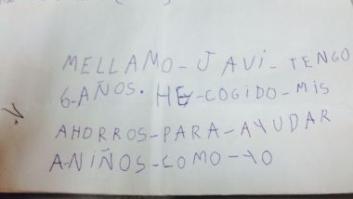 MELLAMO-JAVI-TENGO
6-AÑOS. HE-COGIDO-MIS
AHORROS-PARA-AYUDAR
A-NIÑOS-COMO-YO